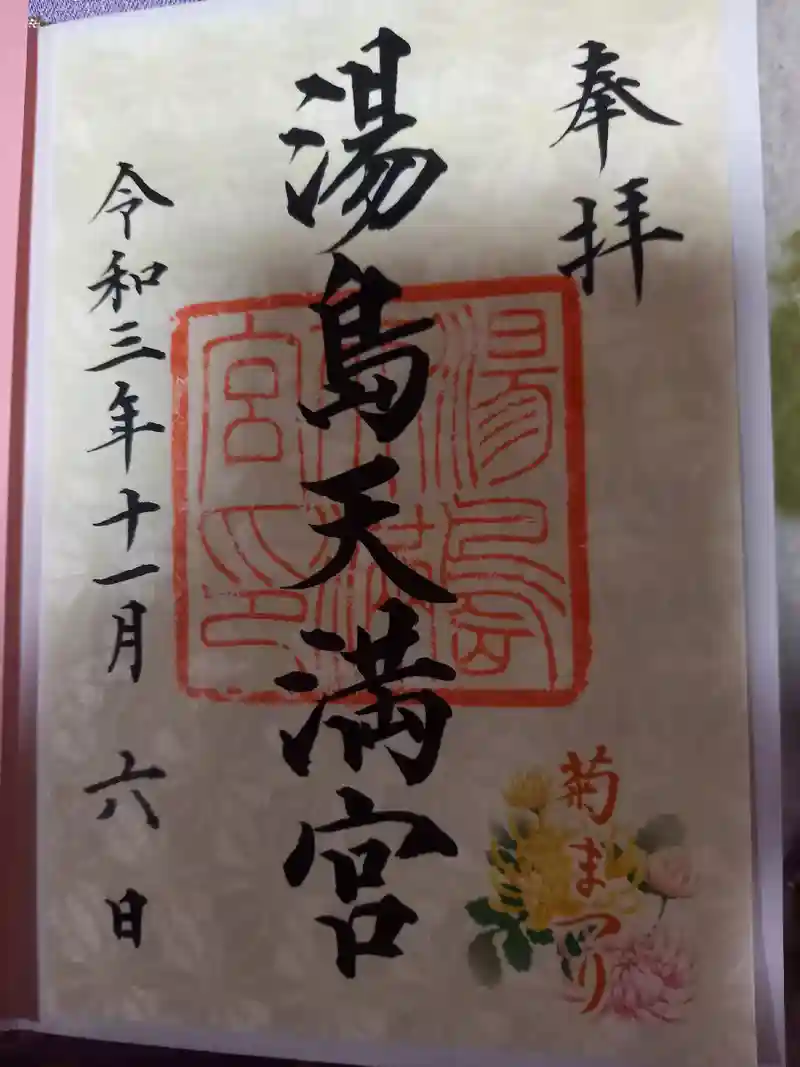 奉拝
湯島天満宮
湯島天満宮印
菊まつり
令和三年十一月六日